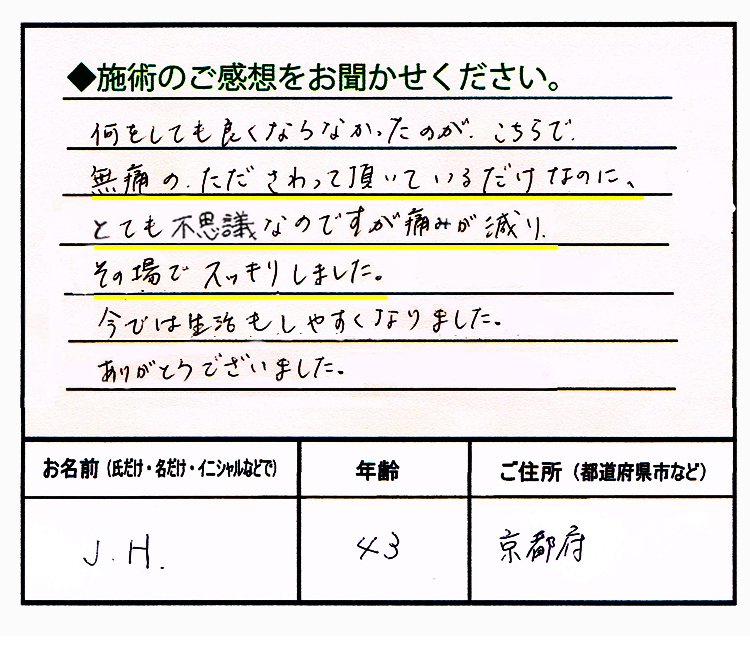 ◆施術のご感想をお聞かせください。
何をしても良くならなかったのが、こちらで、
無痛の、たださわって頂いているだけなのに、
とても不思議なのですが痛みが減り、
その場でスッキリしました。
今では生活もしやすくなりました。
ありがとうございました。
お名前（氏だけ・名だけ・イニシャルなどで） 年齢 ご住所（都道府県市など）
J.H. 43 京都府